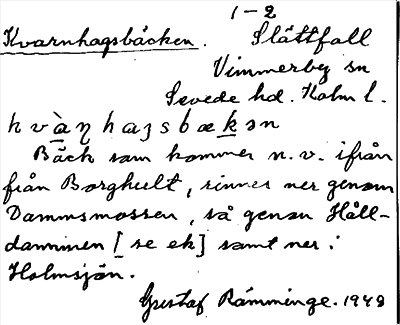 1-2
Kvarnhagsbäcken. Slättfall
Vimmerby sn
Sevede hd. Kalm l.
kvàŋhaʒsbækən
Bäck som kommer n. v. ifrån
från Borghult, rinner ner genom
Dammsmossen, så genom Håll-
dammen [se ek] samt ner i
Holmsjön.
Gustaf Rämminge. 1948